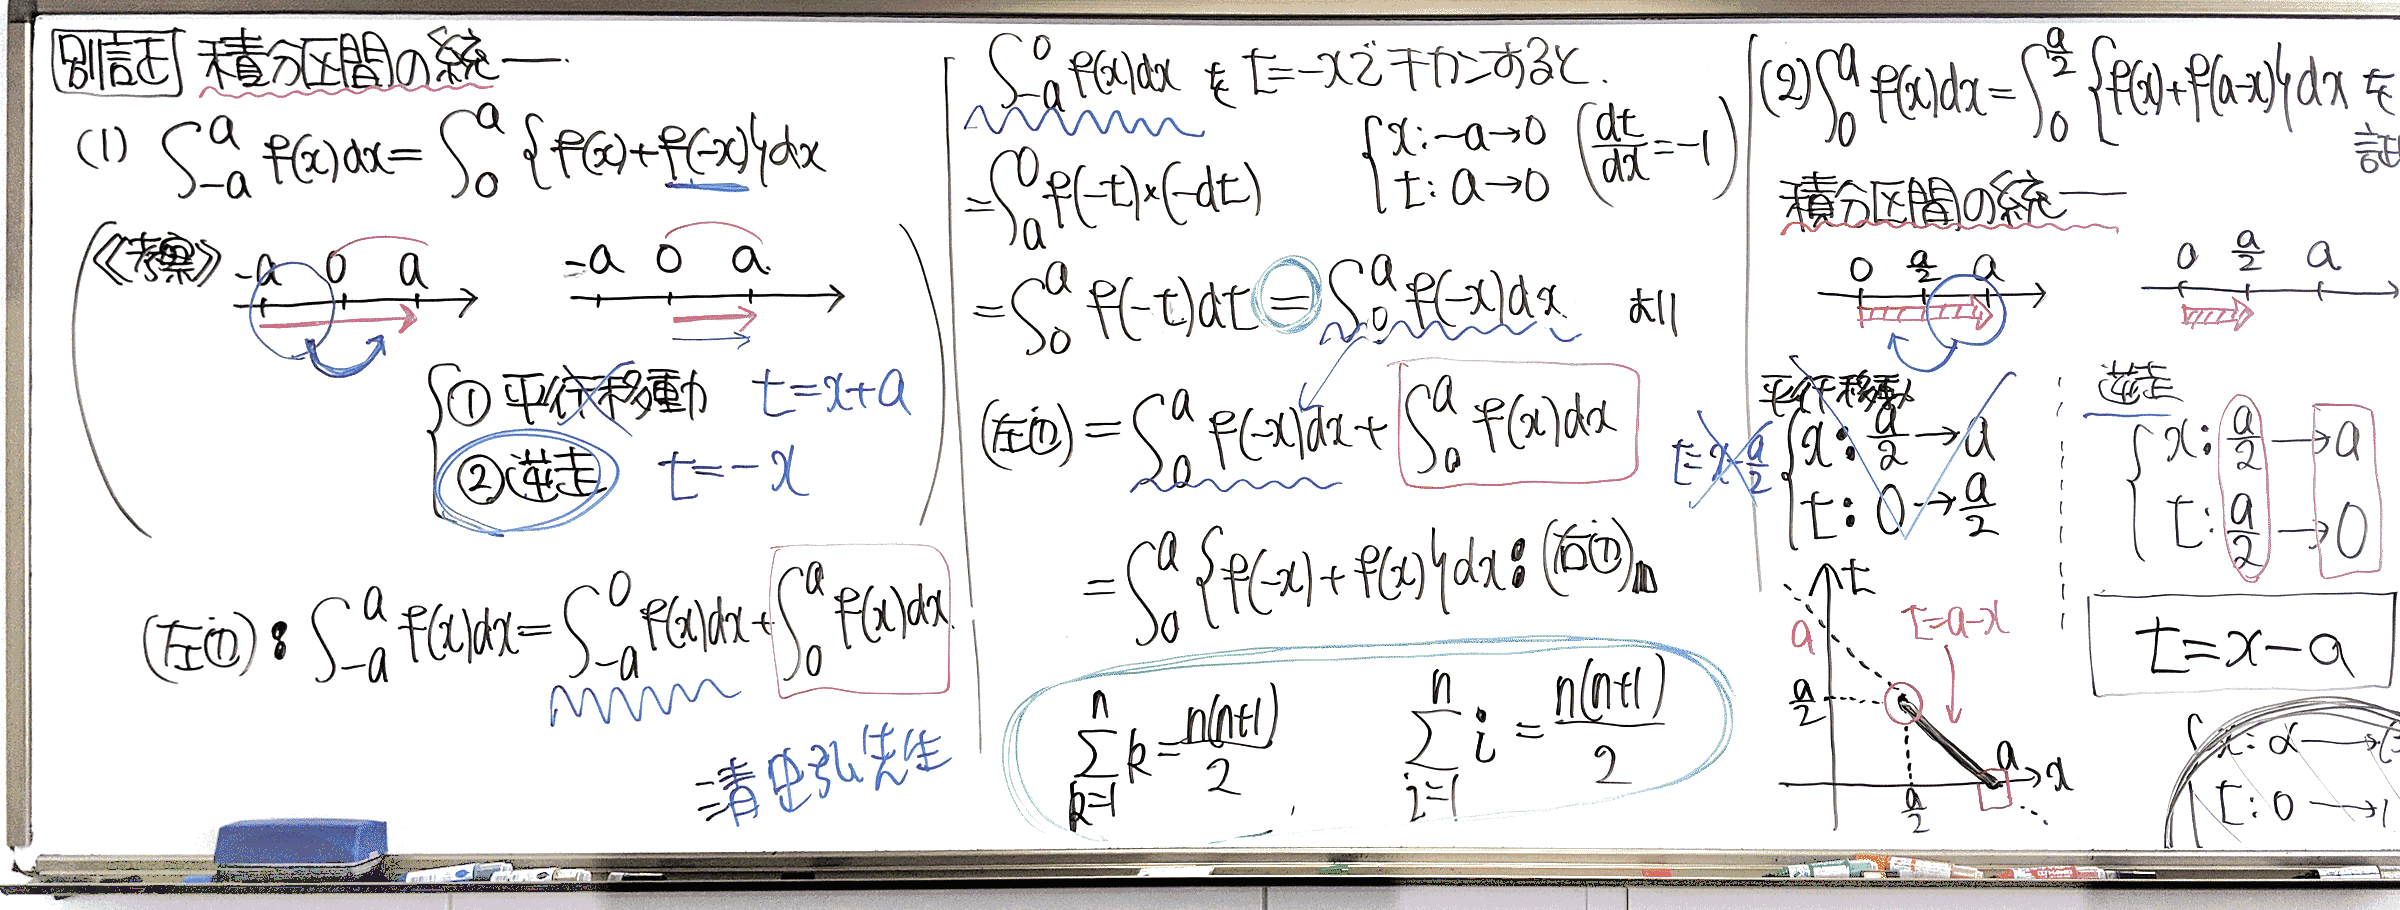 別証 積分区間の統一
(1) ∫_{-a}^{a} f(x)dx = ∫_{0}^{a} {f(x)+f(-x)}dx
《考察》
-a 0 a
-a 0 a
① 平行移動 t=x+a
② 逆走 t=-x
(左辺): ∫_{-a}^{a} f(x)dx = ∫_{-a}^{0} f(x)dx + ∫_{0}^{a} f(x)dx
清史弘先生
∫_{-a}^{0} f(x)dx を t=-xで チカンすると.
{x: -a→0
t: a→0 (dt/dx=-1)
=∫_{a}^{0} f(-t)×(-dt)
=∫_{0}^{a} f(-t)dt = ∫_{0}^{a} f(-x)dx より
(左辺) = ∫_{0}^{a} f(-x)dx + ∫_{0}^{a} f(x)dx
= ∫_{0}^{a} {f(-x)+f(x)}dx : (右辺)
∑_{k=1}^{n} k = n(n+1)/2 ∑_{i=1}^{n} i = n(n+1)/2
(2) ∫_{0}^{a} f(x)dx = ∫_{0}^{a/2} {f(x)+f(a-x)}dx を
証
積分区間の統一
0 a/2 a
0 a/2 a
平行移動
t=x-a/2
{x: a/2→a
t: 0→a/2
逆走
{x: a/2→a
t: a/2→0
t
a
t=a-x
a/2
a/2
a
x
t=x-a
{x: α→
t: 0→1